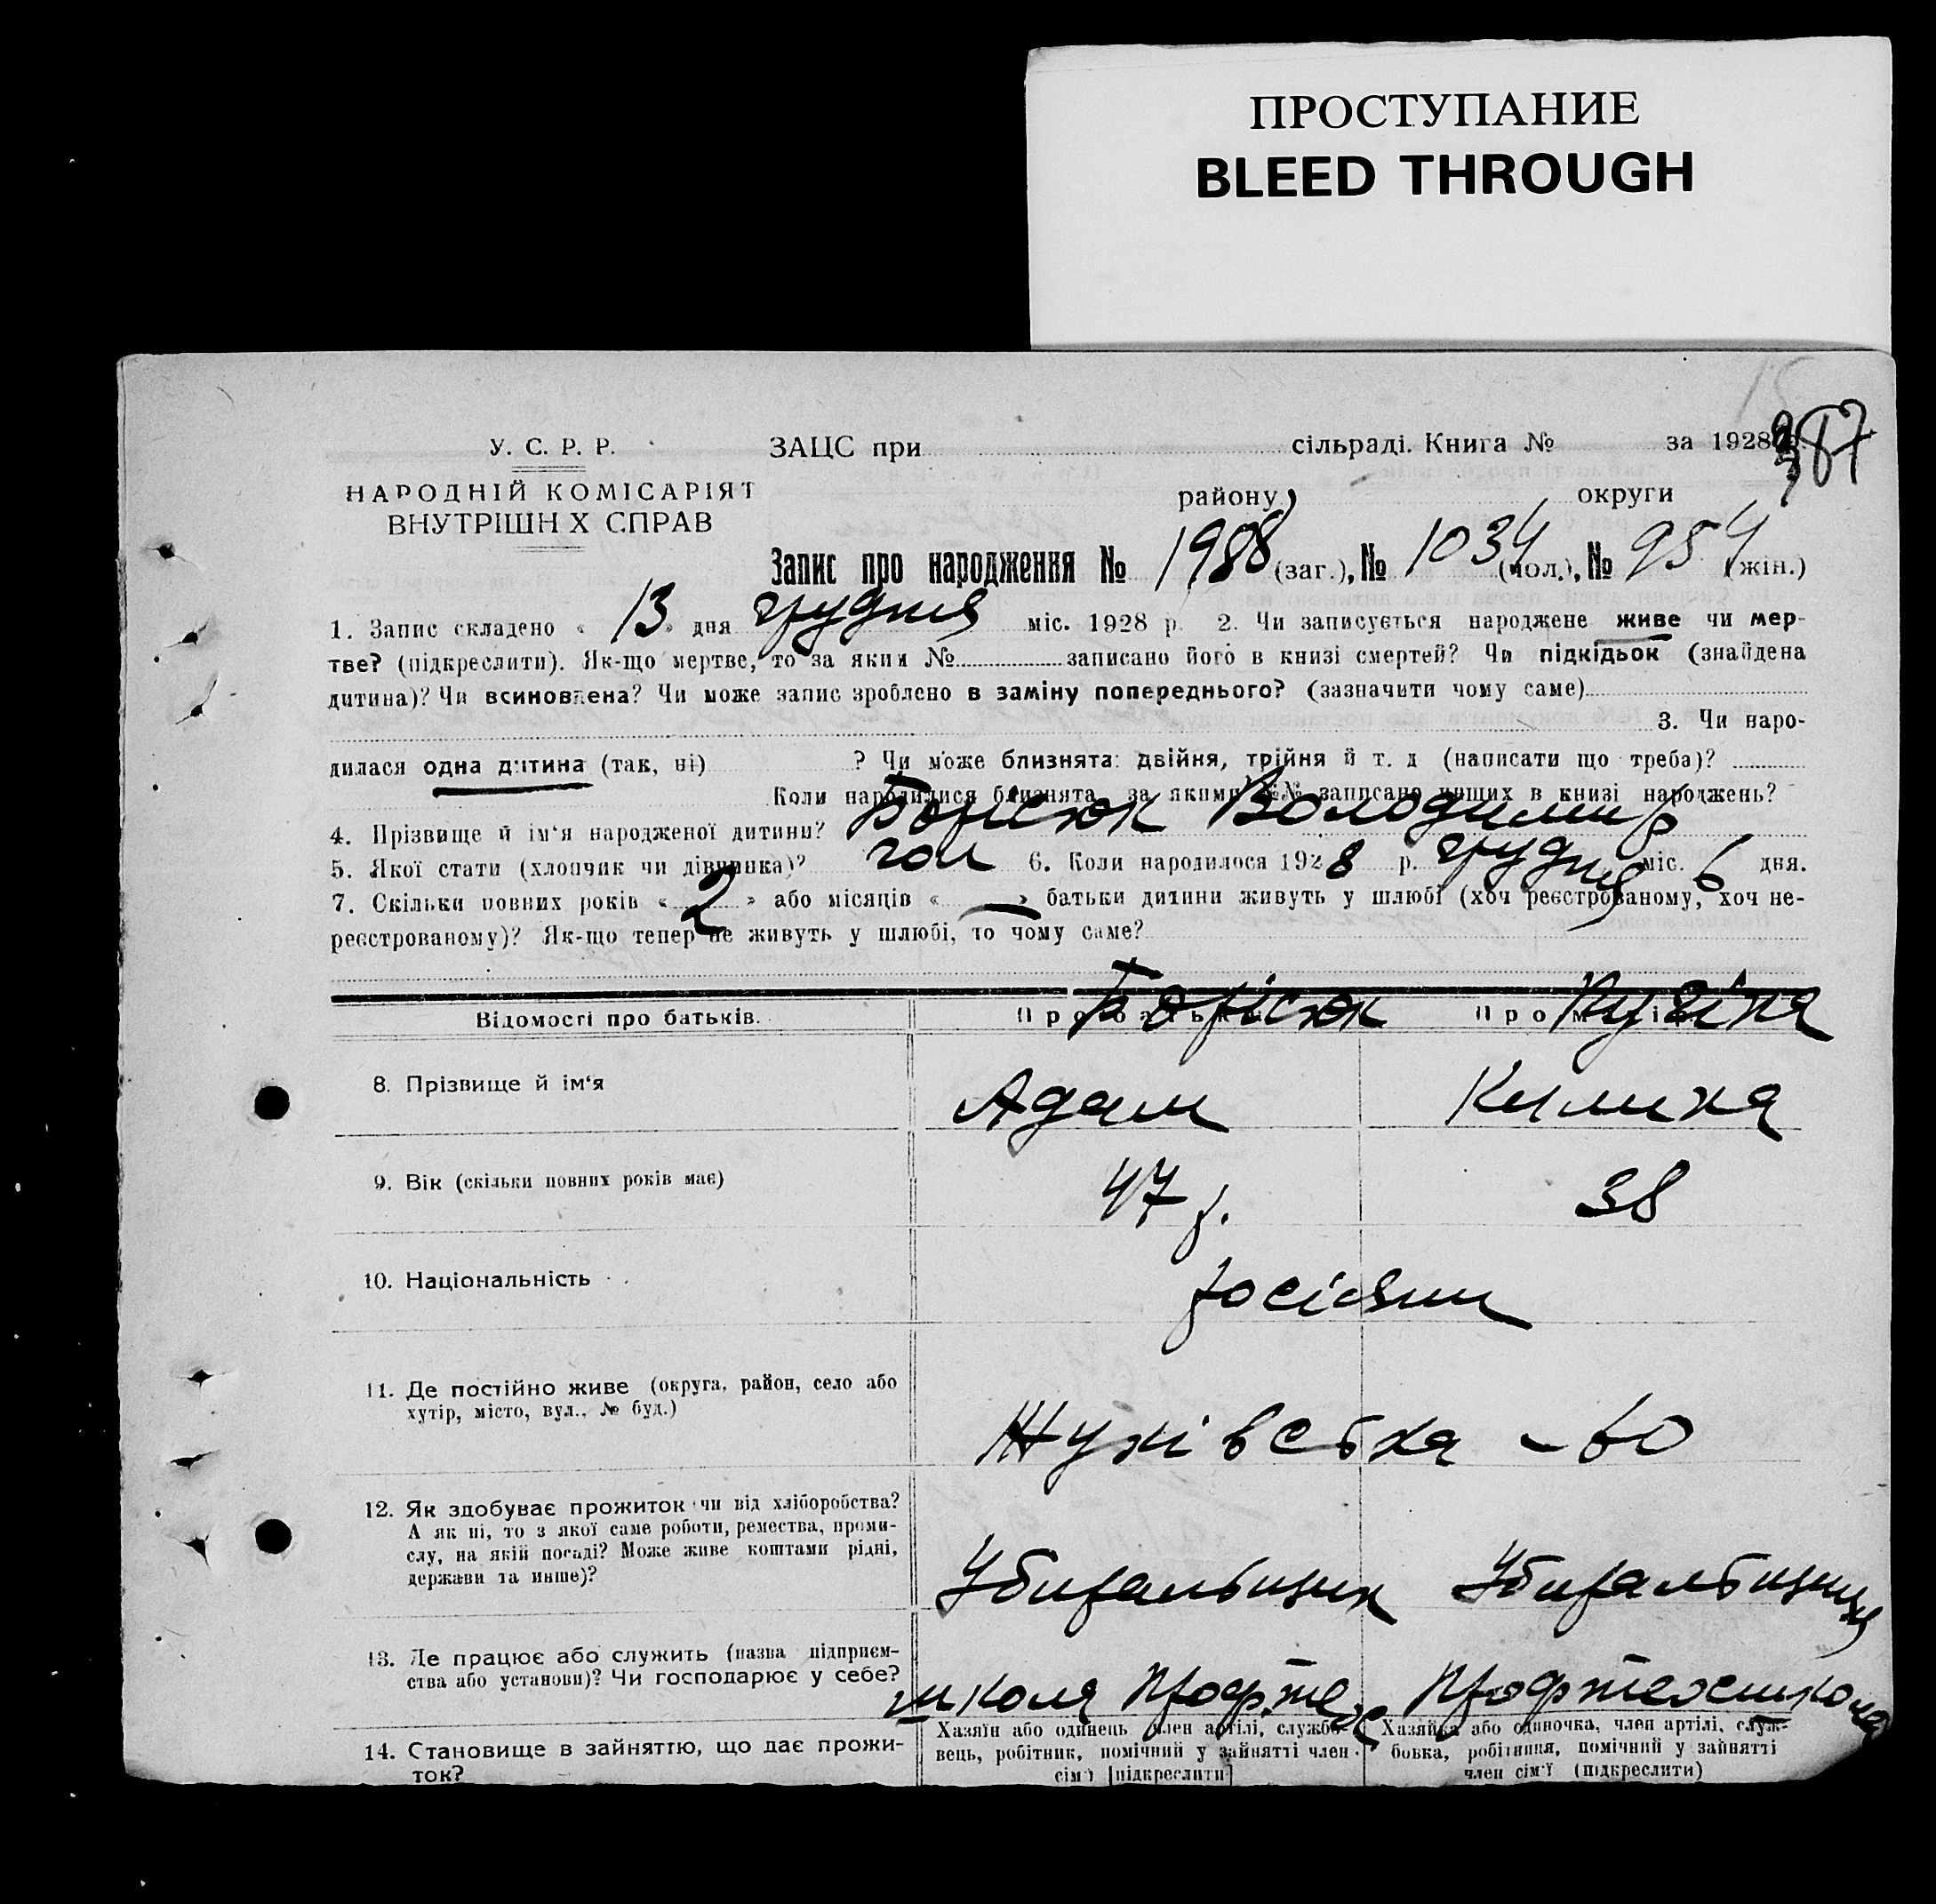 ПРОСТУПАНИЕ
BLEED THROUGH
387
У. С. Р. Р.
НАРОДНІЙ КОМІСАРІЯТ
ВНУТРІШН Х СПРАВ
ЗАЦС при сільраді. Книга № за 1928 р.
району округи
Запис про народження № 1988 (заг.), № 1034 (чол.), № 954 (жін.)
1. Запис складено « 13 » дня грудня міс. 1928 р. 2. Чи записується народжене живе чи мер-
тве? (підкреслити). Як-що мертве, то за яким № записано його в книзі смертей? Чи підкідьок (знайдена
дитина)? Чи всиновлена? Чи може запис зроблено в заміну попереднього? (зазначити чому саме)
3. Чи наро-
дилася одна дитина (так, ні) ? Чи може близнята: двійня, трійня й т. д (написати що треба)?
Коли народилися близнята, за якими №№ записано инших в книзі народжень?
4. Прізвище й ім'я народженої дитини? Борисюк Володимир
5. Якої стати (хлопчик чи дівчинка)? чол 6. Коли народилося 1928 р. грудня міс. 6 дня.
7. Скільки повних років « 2 » або місяців « — » батьки дитини живуть у шлюбі (хоч реєстрованому, хоч не-
реєстрованому)? Як-що тепер не живуть у шлюбі, то чому саме?
Відомості про батьків. Про батька Про матір
8. Прізвище й ім'я Борісюк Адам
9. Вік (скільки повних років має) 47 р. 38
10. Національність росіяни
11. Де постійно живе (округа, район, село або
хутір, місто, вул., № буд.) - 60
12. Як здобуває прожиток чи від хліборобства?
А як ні, то з якої саме роботи, ремества, проми-
слу, на якій посаді? Може живе коштами рідні,
держави та инше)? Убиральщик Убиральщиця
13. Де працює або служить (назва підприєм-
ства або установи)? Чи господарює у себе?
школа Профтех Профтехшкола
14. Становище в зайняттю, що дає прожи-
ток?
Хазяїн або одинець член артілі, службо-
вець, робітник, помічний у зайнятті член
сім'ї [підкреслити]
Хазяйка або одиночка, член артілі, служ-
бовка, робітниця, помічний у зайнятті
член сім'ї (підкреслити)